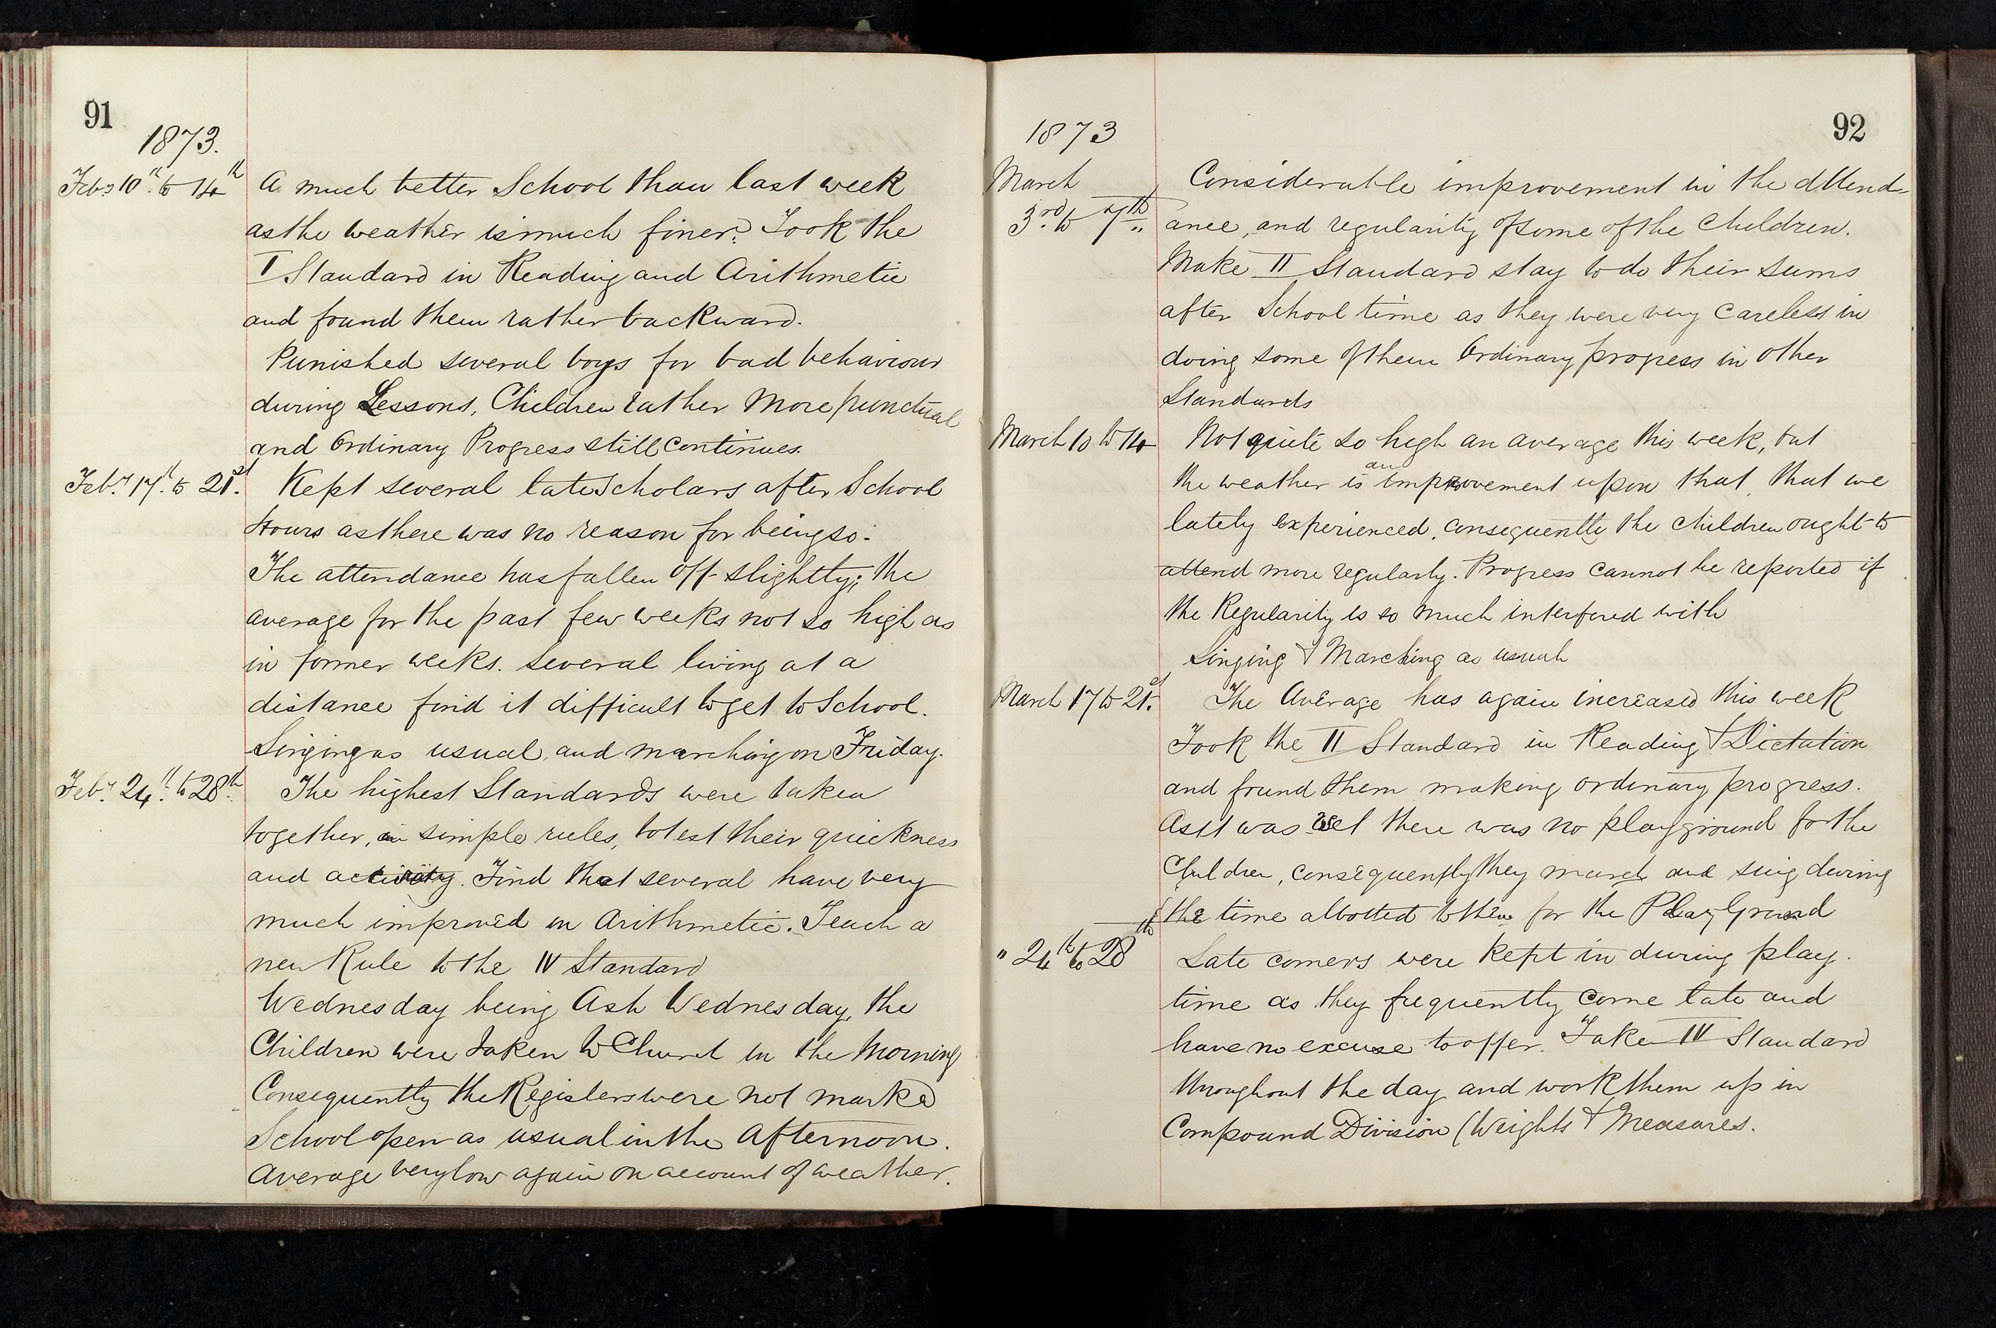 91
1873.
Feby 10th to 14th A much better School than last week
as the weather is much finer. Took the
I Standard in Reading and Arithmetic
and found them rather backward.
Punished several boys for bad behaviour
during Lessons, Children rather More punctual
and Ordinary Progress still continues.
Feby 17th to 21st. Kept several late Scholars after School
Hours as there was no reason for being so.
The attendance has fallen off slightly; the
average for the past few weeks not so high as
in former weeks. Several living at a
distance find it difficult to get to School.
Singing as usual, and marching on Friday.
Feby 24th to 28th. The highest Standards were taken
together, in simple rules, to test their quickness
and activity. Find that several have very
much improved in Arithmetic. Teach a
new Rule to the IV Standard
Wednesday being Ash Wednesday, the
Children were taken to Church in the Morning
Consequently the Registers were not marked
School open as usual in the Afternoon.
Average very low again on account of weather.
92
1873
March
3rd to 7th Considerable improvement in the attend-
ance, and regularity of some of the Children.
Make II Standard stay to do their sums
after School time as they were very careless in
doing some of them Ordinary progress in other
Standards
March 10 to 14 Not quite so high an average this week, but
the weather is an improvement upon that, that we
lately experienced, consequently the children ought to
attend more regularly. Progress cannot be reported if
the Regularity is so much interfered with
Singing & Marching as usual
March 17 to 21st. The Average has again increased this week
Took the II Standard in Reading & Dictation
and found them making ordinary progress.
As it was wet there was no playground for the
Children, consequently they march and sing during
the time allotted to them for the Play Ground
" 24th to 28th Late comers were kept in during play-
time as they frequently come late and
have no excuse to offer. Take IV Standard
throughout the day and work them up in
Compound Division (Weights & Measures.